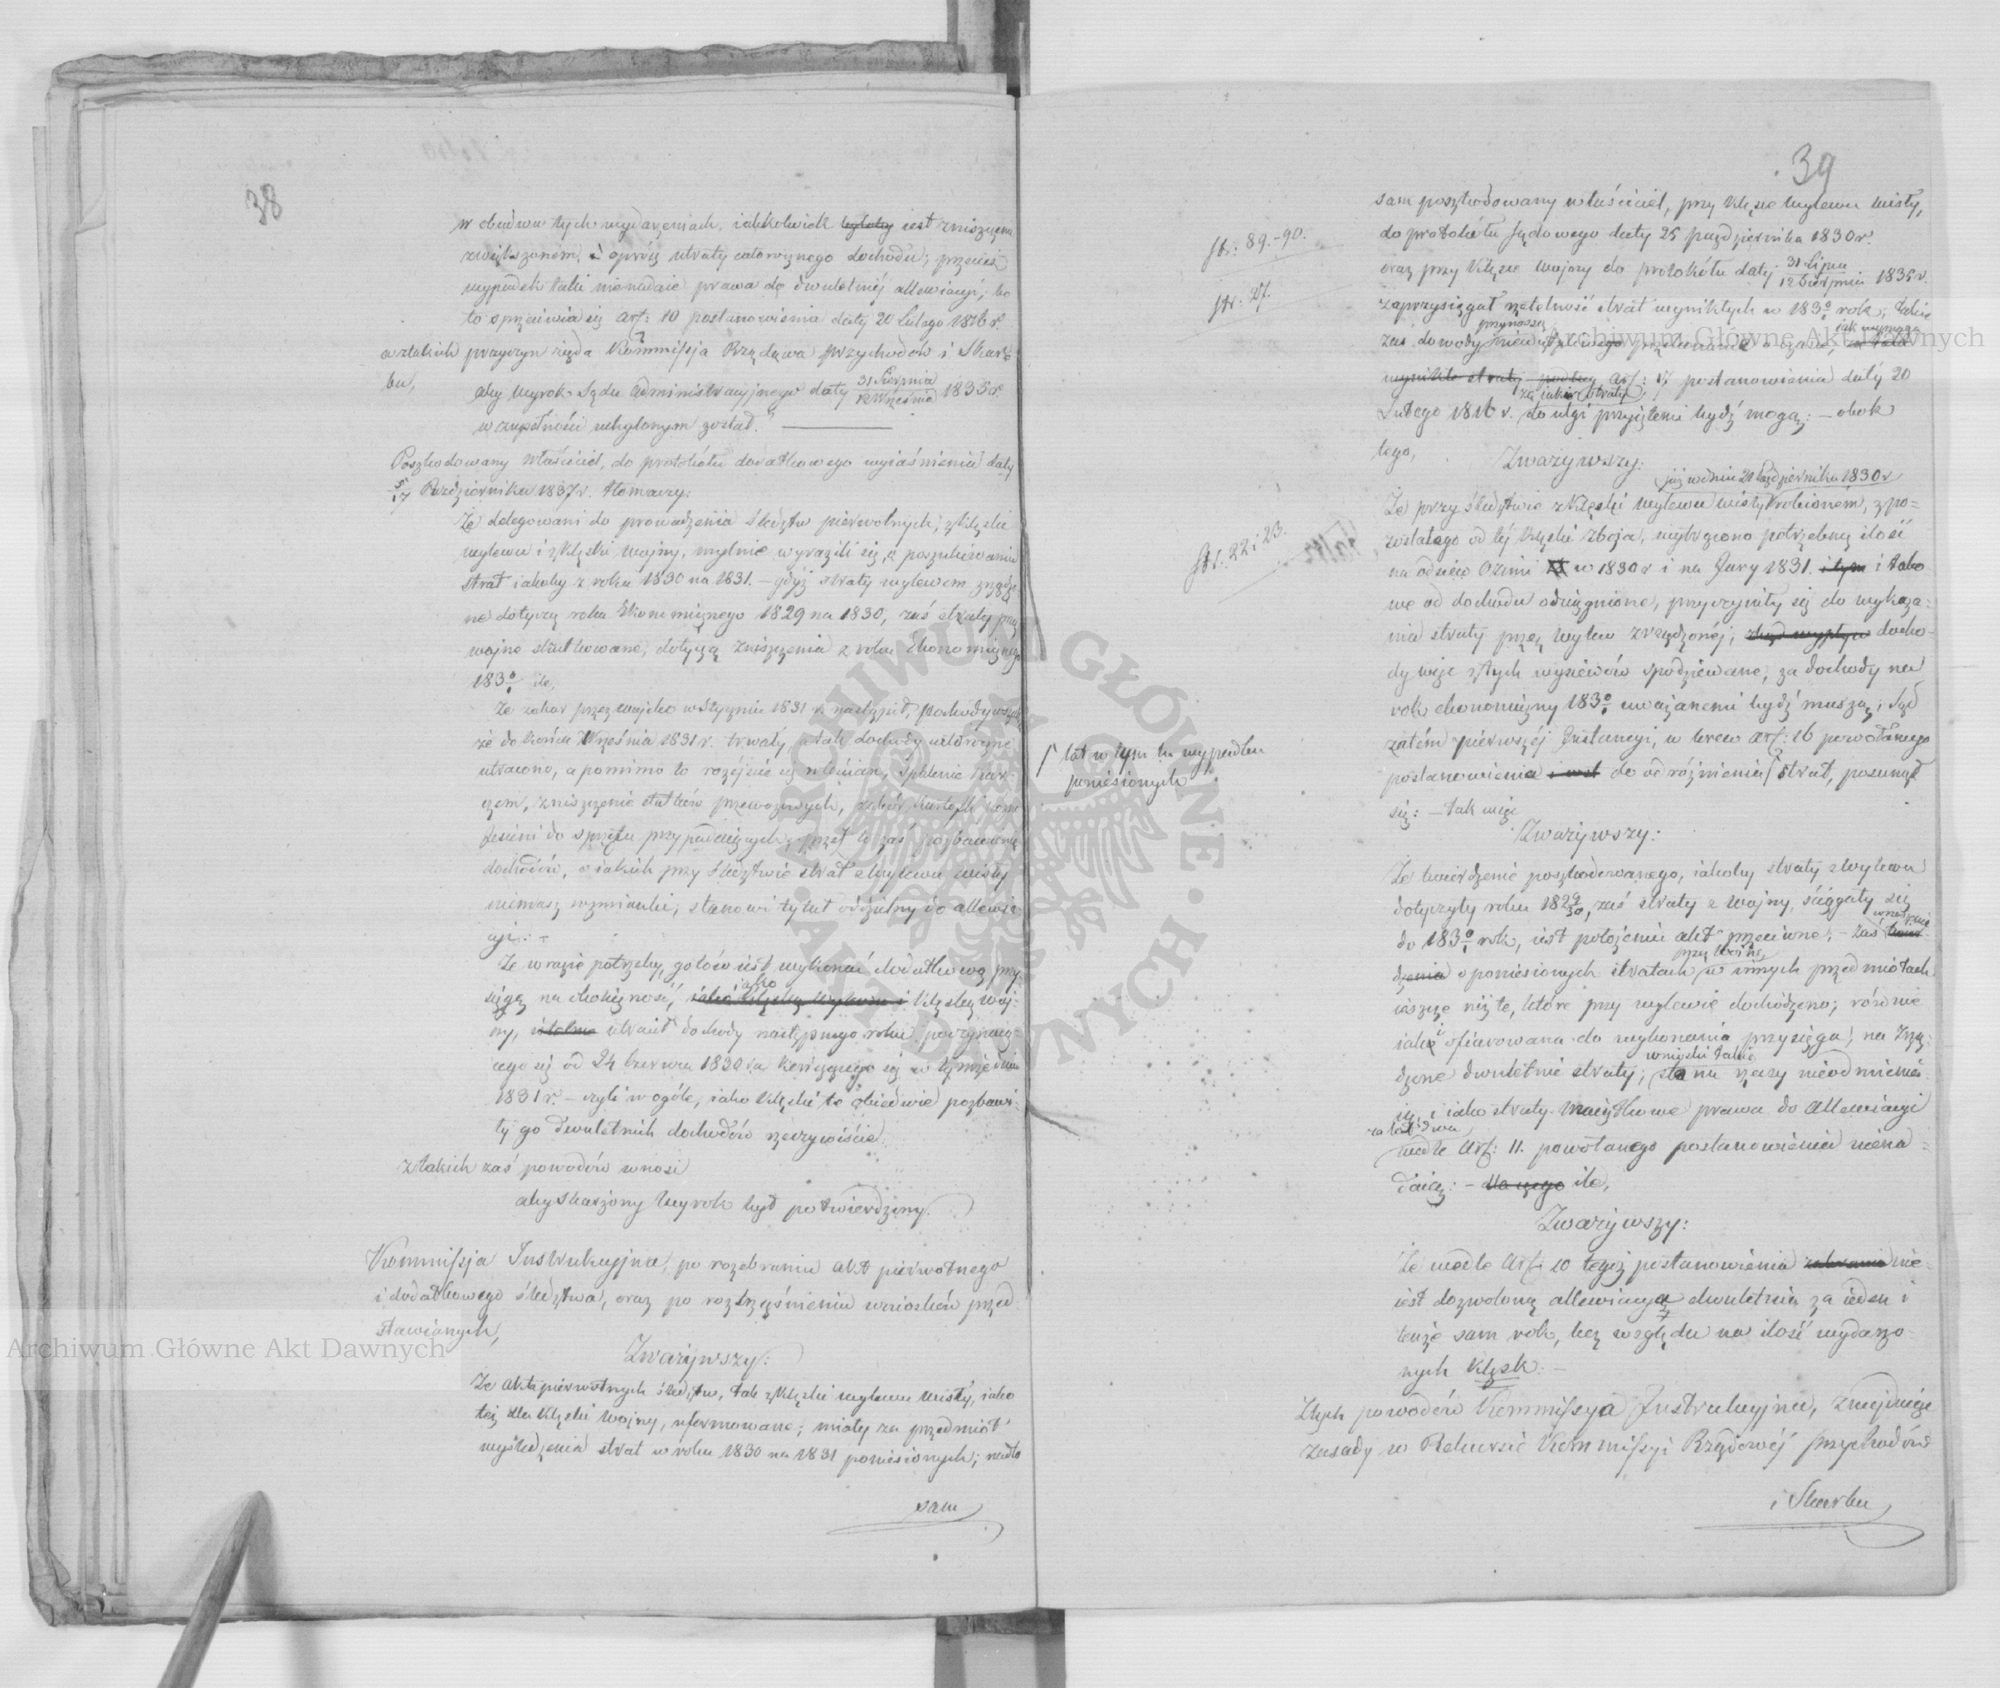 38
w obudwu tych wydarzeniach, iakkolwiek iest zniszczenie
zwiększonem, i oprócz utraty całorocznego dochodu; przecież
wypadek taki nienadaie prawa do dwuletniej allewiacyi, bo
to sprzeciwia się Art: 10 postanowienia daty 20 Lutego 1816 r.
a z takich przyczyn żąda Kommissja Rządowa Przychodów i Skar-
bu,
aby Wyrok Sądu Administracyjnego daty 31 Sierpnia / 12 Września 1835 r.
w zupełności uchylonym został."
Poszkodowany Właściciel, do protokółu dodatkowego wyiaśnienia daty
5/17 Października 1837 r. tłomaczy:
Że delegowani do prowadzenia śledztw pierwotnych, z klęski
wylewu i z klęski Wojny, mylnie wyrazili się, o poszukiwaniu
strat iakoby z roku 1830 na 1831. – gdyż straty wylewem zrządzo-
ne dotyczą roku Ekonomicznego 1829 na 1830, zaś straty przez
wojnę skutkowane, dotyczą zniszczenia z roku Ekonomicznego
1830/1 ile,
Że zabór przez wojsko w Styczniu 1831 r. nastąpił, pochody wojsk
zé do końca Września 1831 r. trwały, a tak dochody całoroczne
utracono, a pomimo to rozejście się włościan, spalenie
czem, zniszczenie statków przewozowych, zabór
ieśieni do sprzętu przypadaiących, przez to zaś pozbawienie
dochodów, o iakich przy śledztwie strat z wylewu Wisły
niemasz wzmianki; stanowi tytuł oddzielny do allewia-
cyi: –
Że w razie potrzeby, gotów iest wykonać dodatkową przy-
sięgę na okoliczność, iako klęską Wylewu i klęską woj-
ny, utracił dochody następnego roku poczynaią-
cego się od 24 Czerwca 1830 r. a kończącego się w tymże dniu
1831 r. – czyli w ogóle, iako klęski te obiedwie pozbawi-
ły go dwuletnich dochodów rzeczywiście.
z takich zaś powodów wnosi
aby skarżony Wyrok był potwierdzony.
Kommissja Instrukcyjna, po rozebraniu akt pierwotnego
i dodatkowego śledztwa, oraz po roztrząśnieniu wniosków przed-
stawianych,
Zważywszy:
Że akta pierwotnych śledztw, tak z klęski wylewu Wisły, iako
też dla klęski Wojny, uformowane; miały za przedmiot
wyśledzenia strat w roku 1830 na 1831 poniesionych; wedle
sam
39
sam poszkodowany właściciel, przy klęsce wylewu Wisły,
do protokółu Sądowego daty 25 Października 1830 r.
str: 89.-90.
oraz przy klęsce wojny do protokółu daty 31 Lipca / 12 Sierpnia 1835 r.
str: 27.
zaprzysięgał rzetelność strat wynikłych w 1830/1 rok; takie
przynoszą
zaś dowody przekonanie o czasie, iak wymaga
wynikło straty podług Art: 17 postanowienia daty 20
za iakie straty
Lutego 1816 r. do ulgi przyięteni bydź mogą: – obok
tego,
Zważywszy:
już w dniu 21 Października 1830 r
Że przy śledztwie z klęski wylewu Wisły robionem, z po-
zostałego od tej klęski zboża, wytrącono potrzebną ilość
str: 22 i 23.
na odsiew Ozimi w 1830 r i na Jary 1831. i tako-
we od dochodu odciągnione, przyczyniły się do wykaza-
nia straty przez wylew zrządzonej; zkąd wypływ docho-
dy więc z tych wysiewów spodziewane, za dochody na
rok ekonomiczny 1830/1 uważanemi bydź muszą; Sąd
zatém pierwszej Instancyi, w brew Art: 16 powołanego
postanowienia do odróżnienia strat, posunął
tat w tym tu wypadku
poniesionych
się: – tak więc
Zważywszy:
Że twierdzenie poszkodowanego, iakoby straty z wylewu
dotyczyły roku 1829/30, zaś straty z wojny, sciągały się
do 1830/1 rok, iest położeniu akt przeciwne; – zaś
przez Wojnę
o poniesionych stratach w innych przedmiotach
ieszcze niż te, które przy wylewie dochodzono; równie
iako ofiarowana do wykonania przysięga, na zrzą-
dzone dwuletnie straty; wnioski takie stanu rzeczy nieodmienia-
ią, i iako straty maiątkowe prawa do Allewiacyi
za lat dwa
wedle Art: 11. powołanego postanowienia niena-
daią: – dla czego ile,
Zważywszy:
Że wedle Art: 10 tegoż postanowienia nie-
iest dozwoloną allewiacya dwuletnia za ieden i
tenże sam rok, bez względu na ilość wydarzo-
nych klęsk. –
Z tych powodów Kommissya Instrukcyjna, znajduiąc
zasady w Rekursie Kommissyi Rządowéj Przychodów
i Skarbu
Archiwum Główne Akt Dawnych
Archiwum Główne Akt Dawnych
ARCHIWUM GŁÓWNE AKT DAWNYCH